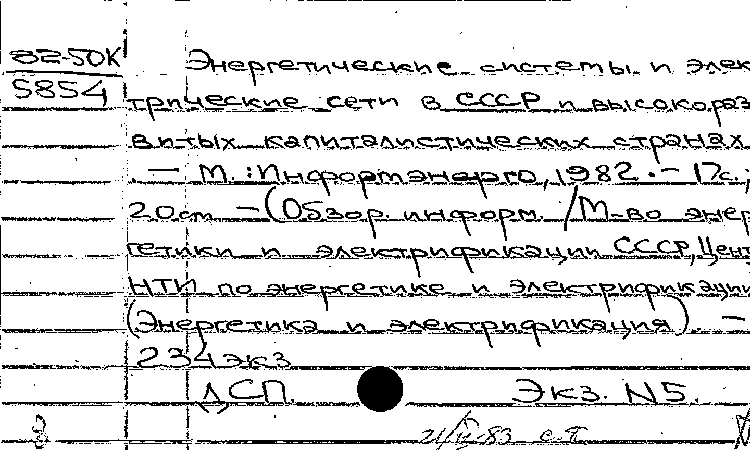 82-50К Энергетические системы и элек
5854 трические сети в СССР и высокораз
витых капиталистических странах.
— М.: Информэнерго, 1982. — 17с.;
20см — (Обзор. информ. / М-во энер
гетики и электрификации СССР, Центр
НТИ по энергетике и электрификации
(Энергетика и электрификация). —
234 экз
СП. Экз. N5.
83